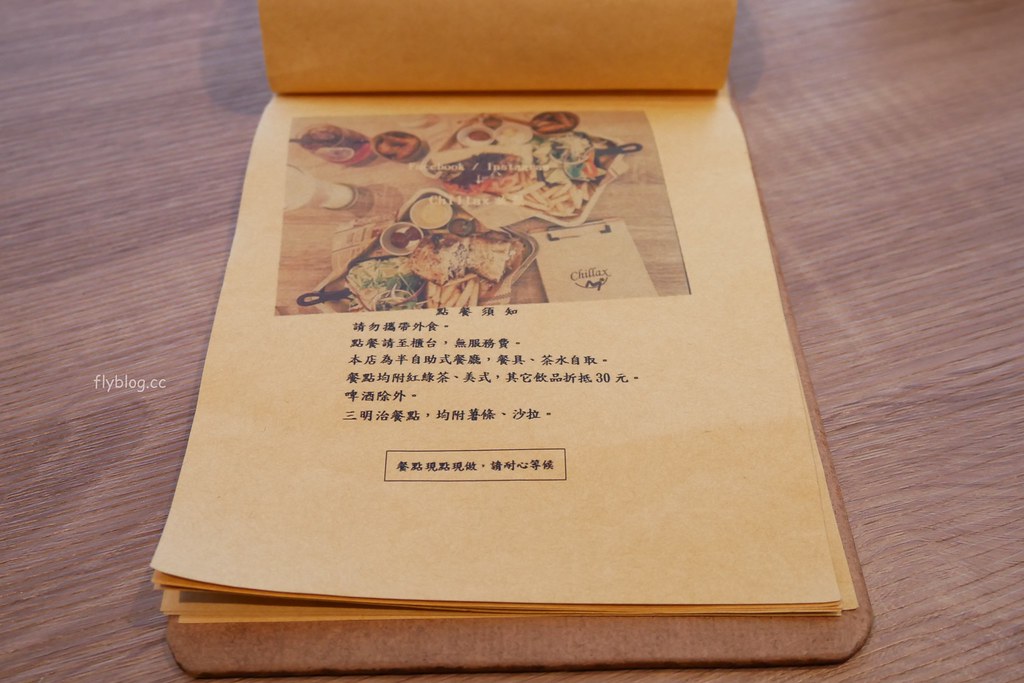 Facebook / Instagram
Chillax
Chillax
點餐須知
請勿攜帶外食。
點餐請至櫃台,無服務費。
本店為半自助式餐廳,餐具、茶水自取。
餐點均附紅綠茶、美式,其它飲品折抵30元。
啤酒除外。
三明治餐點,均附薯條、沙拉。
餐點現點現做,請耐心等候
flyblog.cc